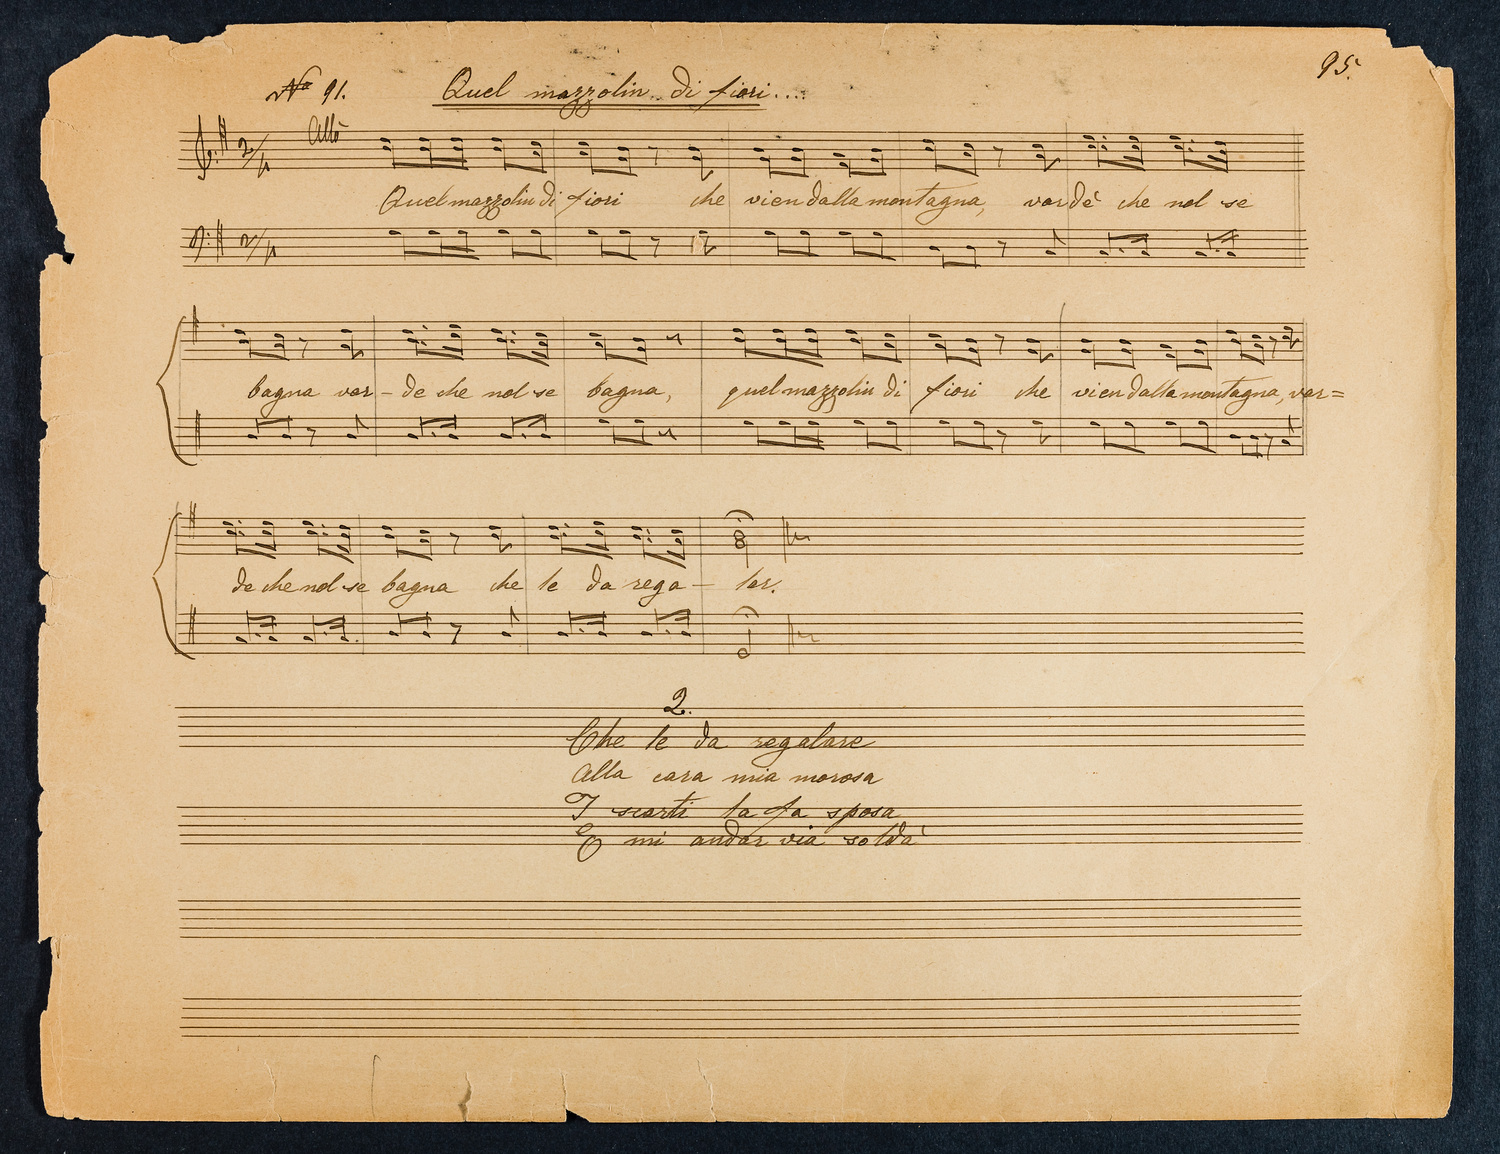 95.
No 91. Quel mazzolin di fiori....
Allo
2/4
Quel mazzolin di fiori che vien dalla montagna, vardè che nol se
2/4
bagna var - de che nol se bagna, quel mazzolin di fiori che vien dalla montagna, var=
de che nol se bagna che le da rega - lar.
2.
Che le da regalare
Alla cara mia morosa
I scarti la fa sposa
E mi andar via soldà